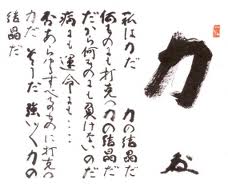 力
私は力だ 力の結晶だ
何ものにも打克つ力の結晶だ
だから何ものにも負けないのだ
病にも 運命にも・・・・
否あらゆるすべてのものに打克つ
力だ そうだ 強い〱力の
結晶だ